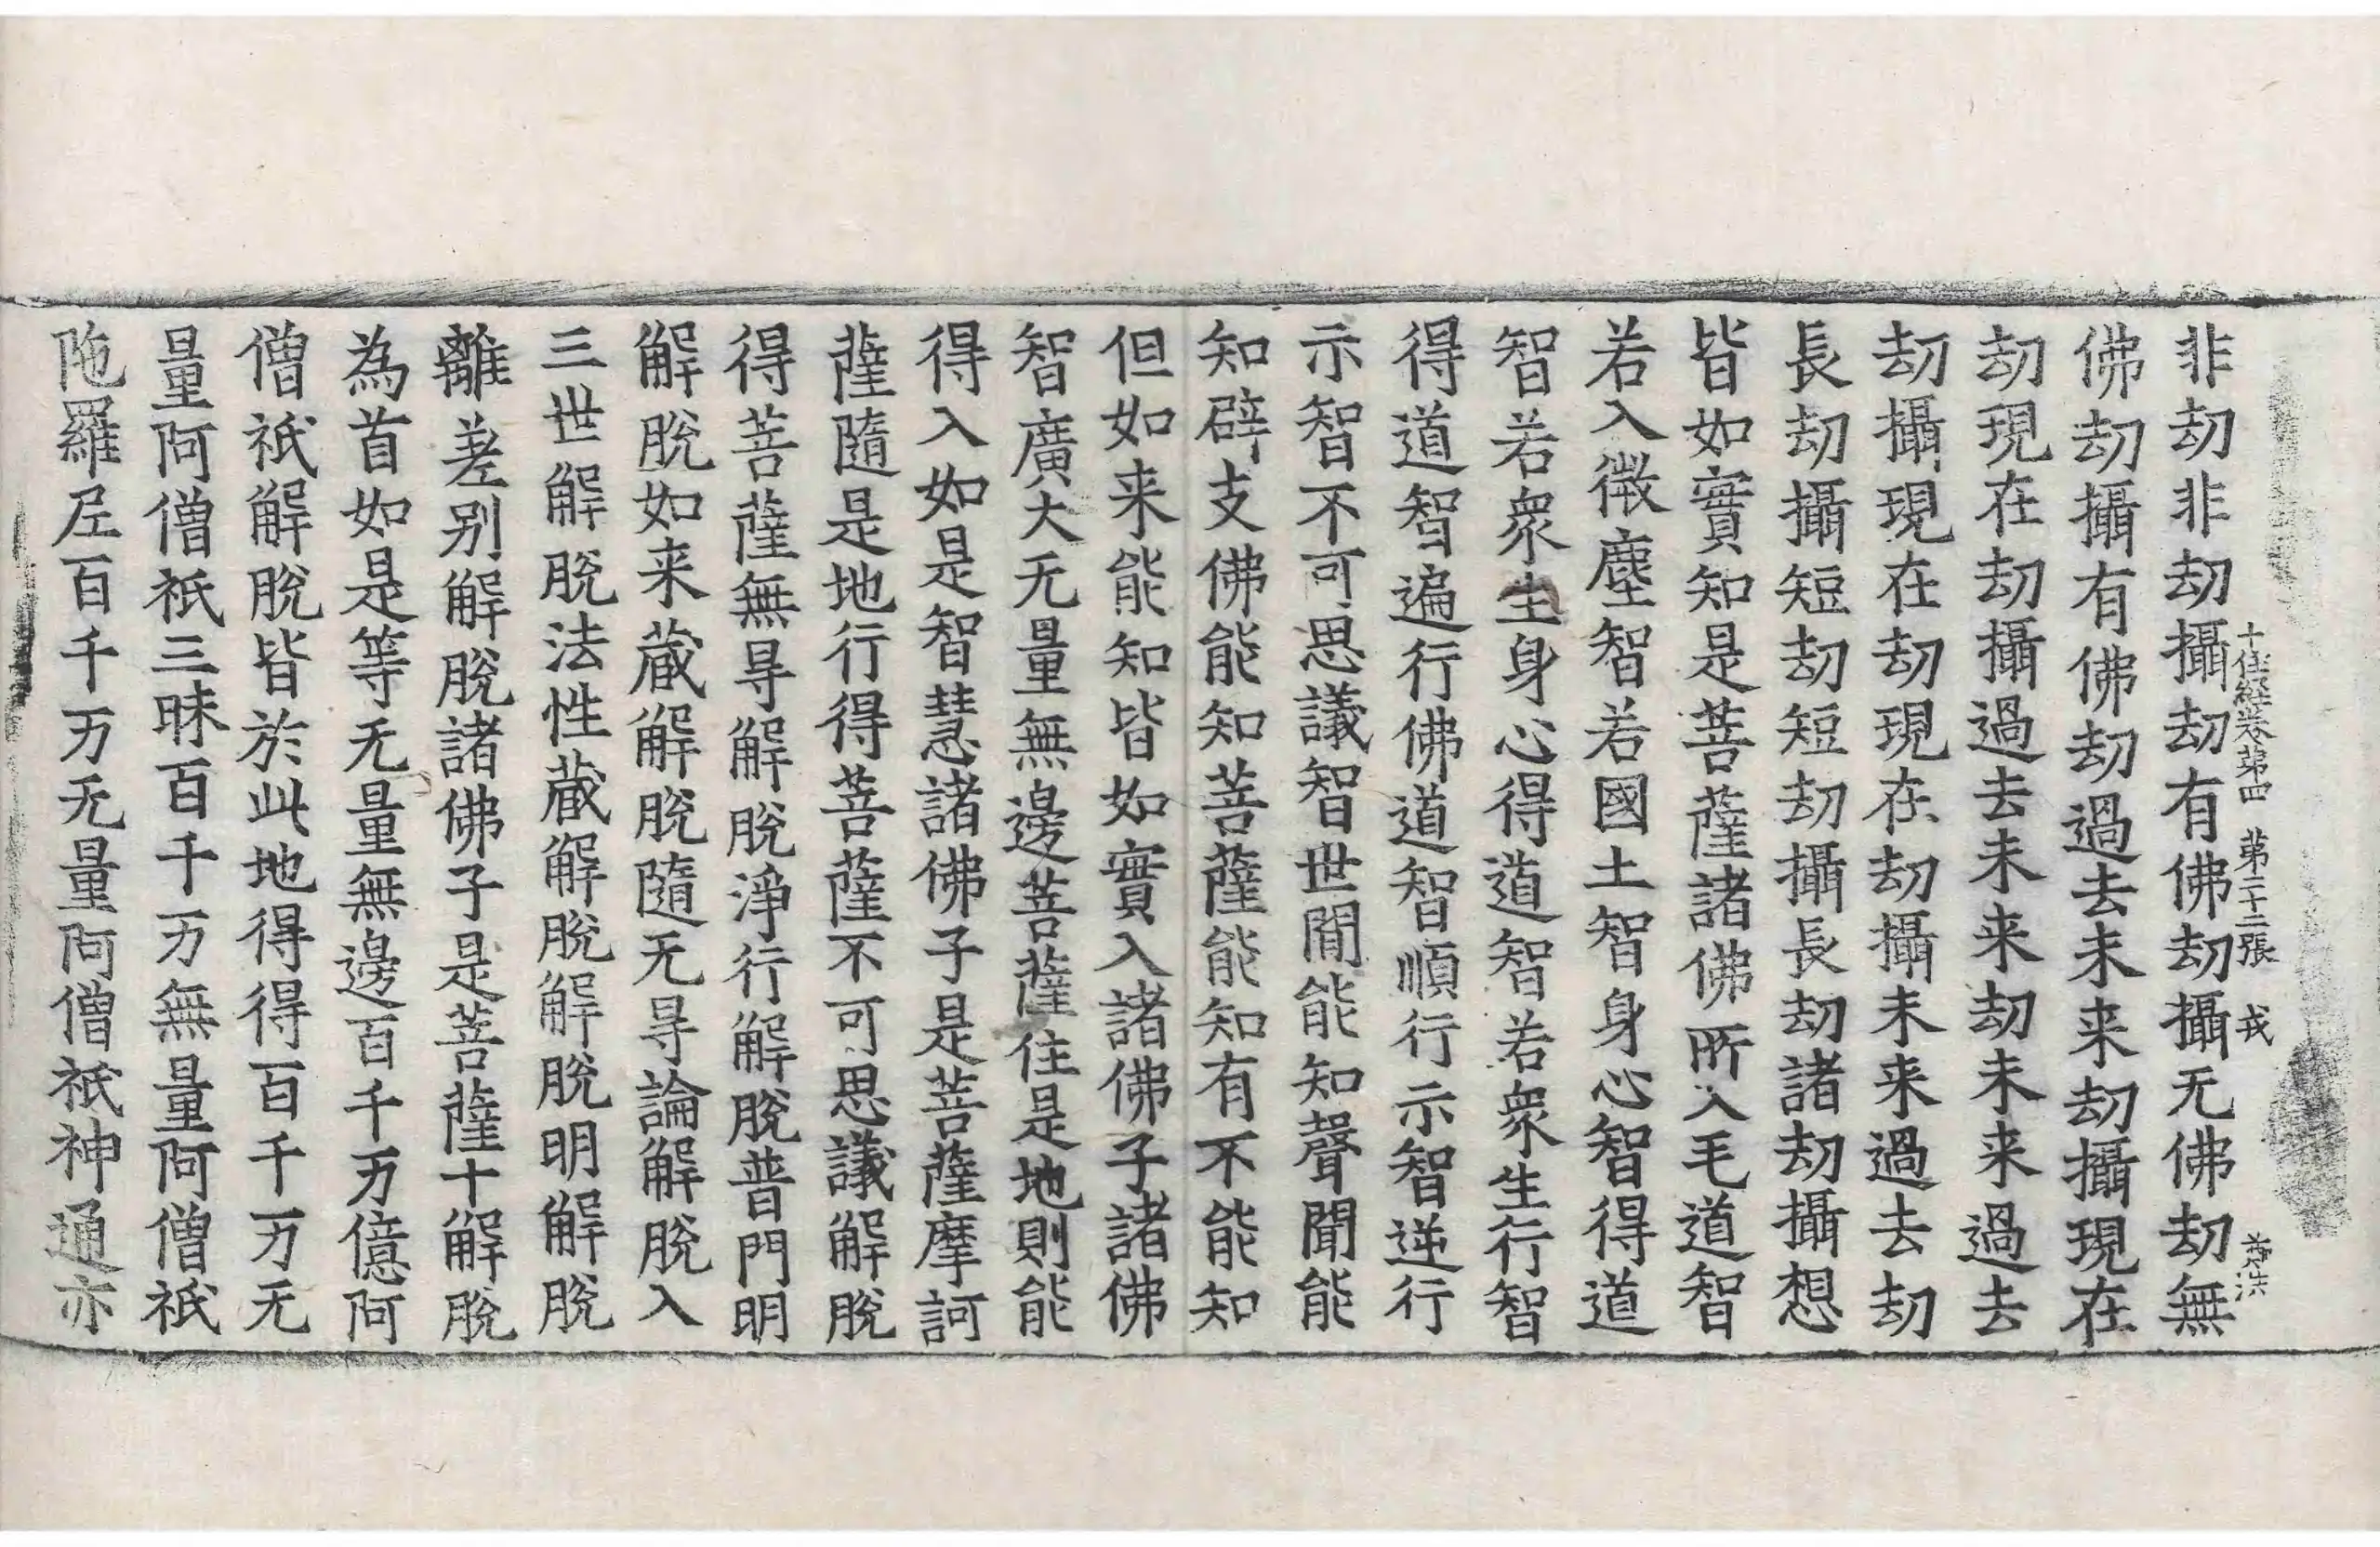 十住經卷第四 第二十二張 戎
非劫非劫攝劫有佛劫攝无佛劫無
佛劫攝有佛劫過去未来劫攝現在
劫現在劫攝過去未来劫未来過去
劫攝現在劫現在劫攝未来過去劫
長劫攝短劫短劫攝長劫諸劫攝想
皆如實知是菩薩諸佛所入毛道智
若入微塵智若國土智身心智得道
智若衆生身心得道智若衆生行智
得道智遍行佛道智順行示智逆行
示智不可思議智世閒能知聲聞能
知辟支佛能知菩薩能知有不能知
但如来能知皆如實入諸佛子諸佛
智廣大无量無邊菩薩住是地則能
得入如是智慧諸佛子是菩薩摩訶
薩隨是地行得菩薩不可思議解脫
得菩薩無㝵解脫淨行解脫普門明
解脫如来蔵解脫隨无㝵論解脫入
三世解脫法性蔵解脫解脫明解脫
離差别解脫諸佛子是菩薩十解脫
為首如是等无量無邊百千万億阿
僧祇解脫皆於此地得得百千万无
量阿僧祇三昧百千万無量阿僧祇
陁羅尼百千万无量阿僧祇神通亦